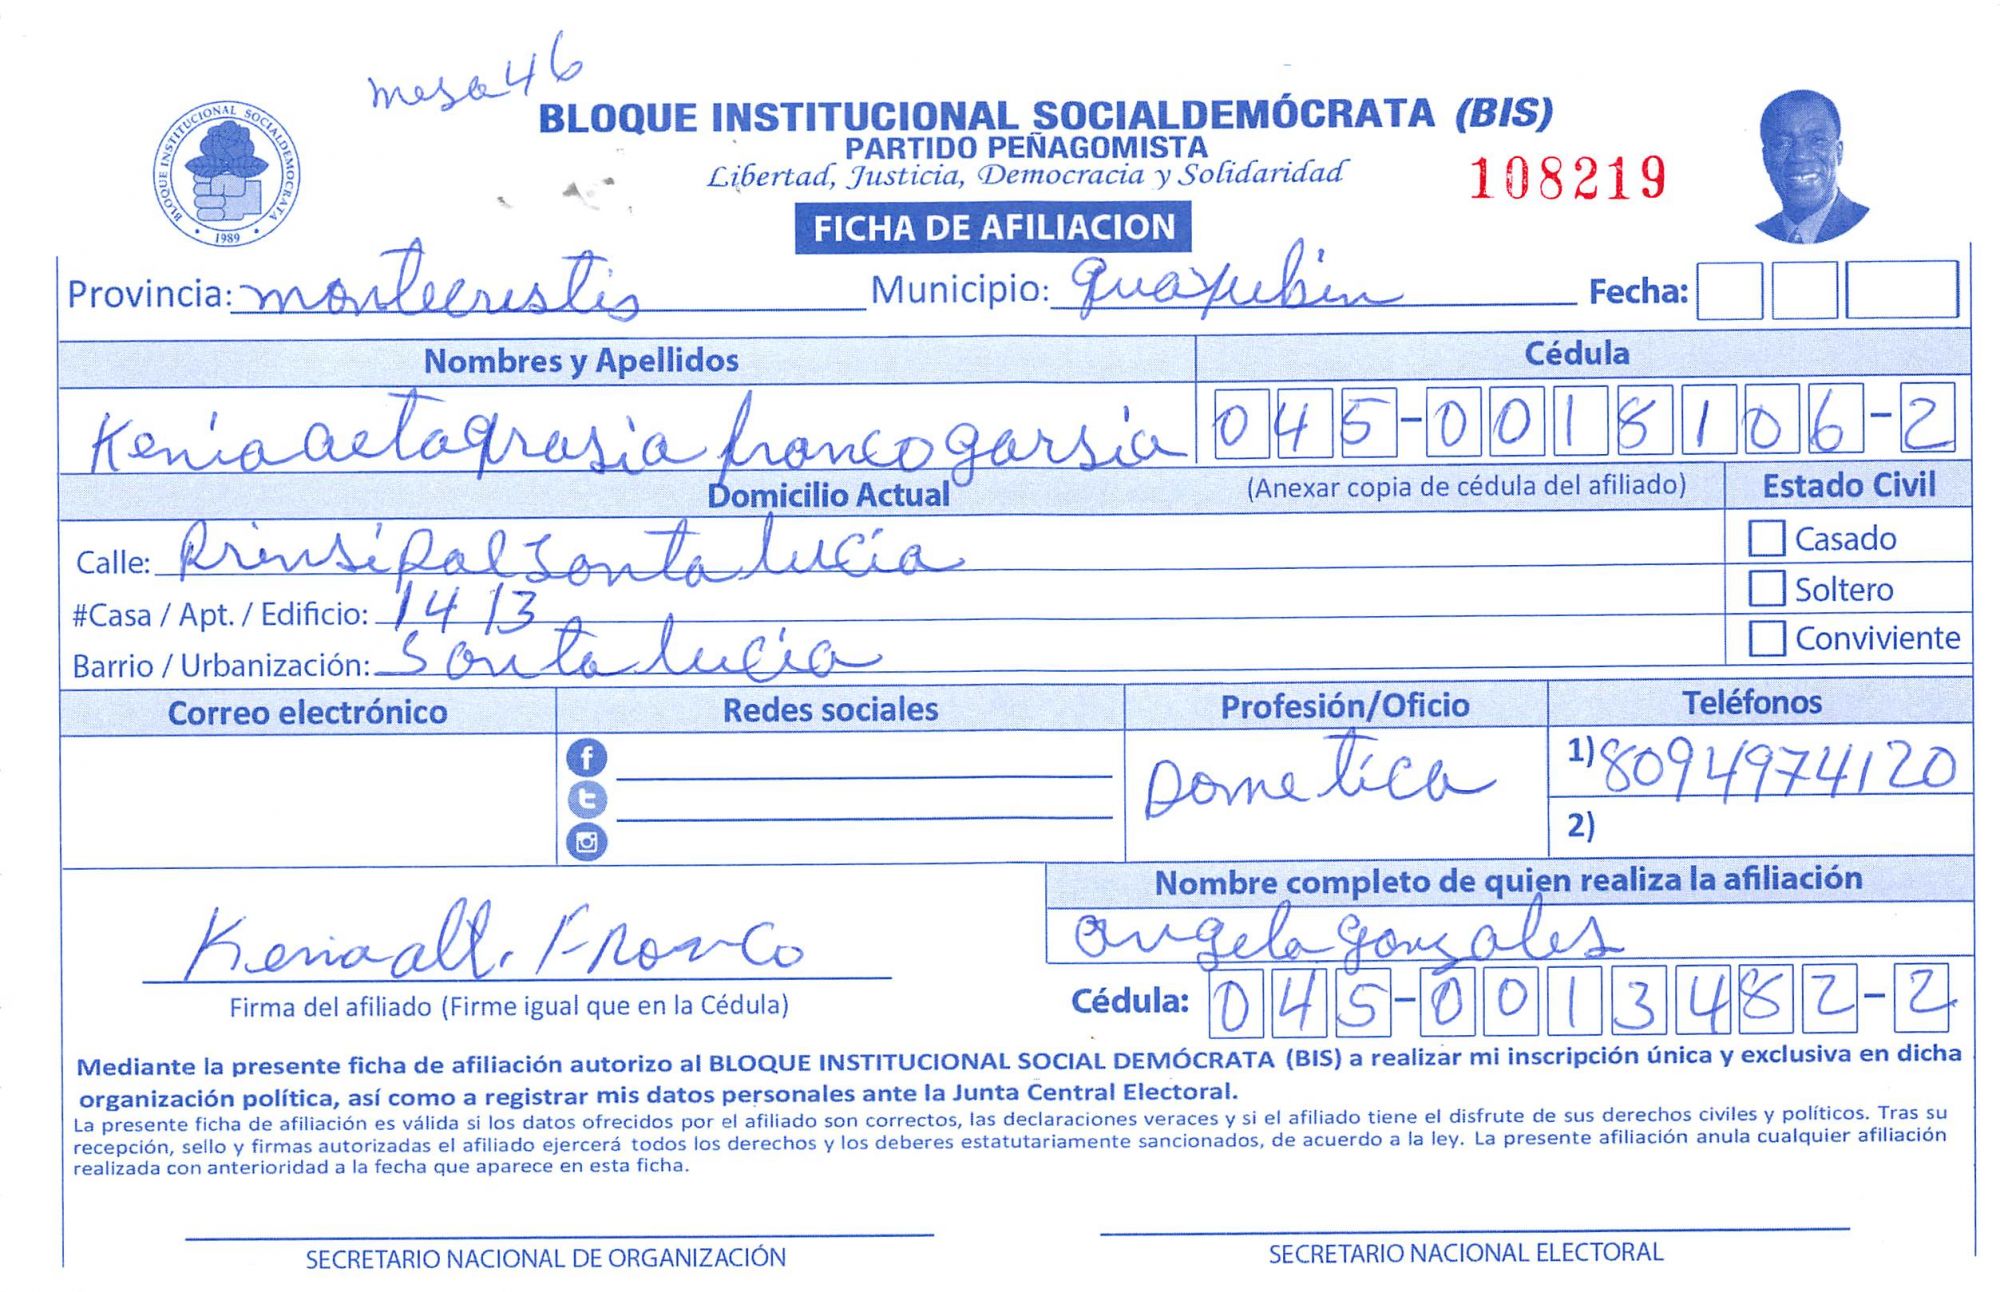 mesa 46
BLOQUE INSTITUCIONAL SOCIALDEMÓCRATA (BIS)
PARTIDO PEÑAGOMISTA
Libertad, Justicia, Democracia y Solidaridad
108219
BLOQUE INSTITUCIONAL SOCIALDEMOCRATA
1989
FICHA DE AFILIACION
Provincia: montecristis Municipio: guayubin Fecha:
Nombres y Apellidos Cédula
Kenia altagrasia franco garsia 045-0018106-2
Domicilio Actual (Anexar copia de cédula del afiliado) Estado Civil
Calle: Prinsipal santa lucia Casado
#Casa / Apt. / Edificio: 14 13 Soltero
Barrio / Urbanización: Santa lucia Conviviente
Correo electrónico Redes sociales Profesión/Oficio Teléfonos
Dometica 1) 8094974120
2)
Nombre completo de quien realiza la afiliación
Kenia alt. Franco angela gonzales
Firma del afiliado (Firme igual que en la Cédula) Cédula: 045-0013482-2
Mediante la presente ficha de afiliación autorizo al BLOQUE INSTITUCIONAL SOCIAL DEMÓCRATA (BIS) a realizar mi inscripción única y exclusiva en dicha
organización política, así como a registrar mis datos personales ante la Junta Central Electoral.
La presente ficha de afiliación es válida si los datos ofrecidos por el afiliado son correctos, las declaraciones veraces y si el afiliado tiene el disfrute de sus derechos civiles y políticos. Tras su
recepción, sello y firmas autorizadas el afiliado ejercerá todos los derechos y los deberes estatutariamente sancionados, de acuerdo a la ley. La presente afiliación anula cualquier afiliación
realizada con anterioridad a la fecha que aparece en esta ficha.
SECRETARIO NACIONAL DE ORGANIZACIÓN SECRETARIO NACIONAL ELECTORAL